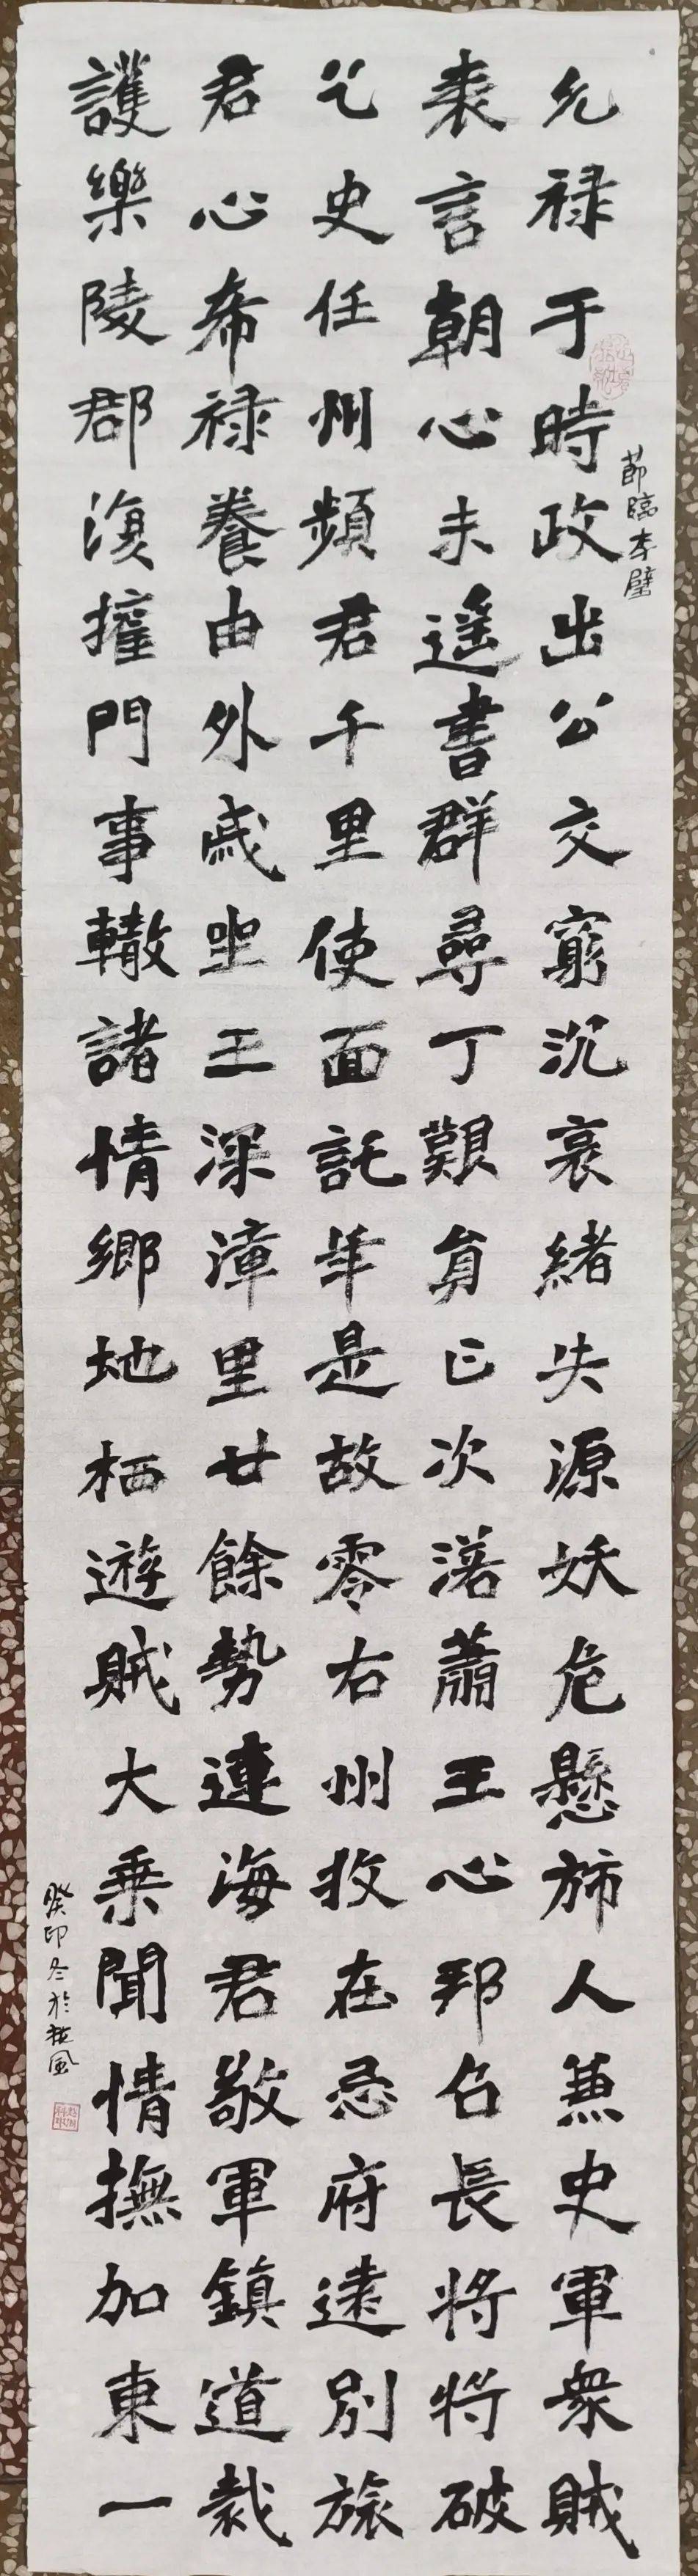 節臨李璧
允禄于時政出公交窮沉哀緒失源妖危懸旆人兼史軍衆賊
表言朝心未遥書群尋丁艱負已次渃蕭王心邦召長将将破
父史任州頻君千里使面託年是故零右州牧在忌府遠別旅
君心希禄養由外戚坐王深漳里廿餘勢連海君敬軍鎮道裁
護樂陵郡須摧門事轍諸情鄉地栖遊賊大乗聞情撫加東一
癸卯冬於牧風